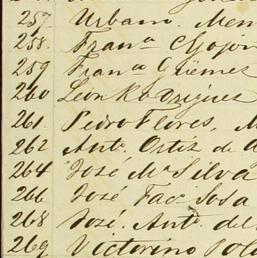 257 Urbano. Men
258. Franᶜᵃ Chojon
259 Franᶜᵒ Güemes
260 Leon Rodrigues
261 Pedro Flores, M
262 Antº. Ortiz de a
264 José Mª Silva
266 José Facº Sosa
268 José. Antº. del
269 Victorino Pola